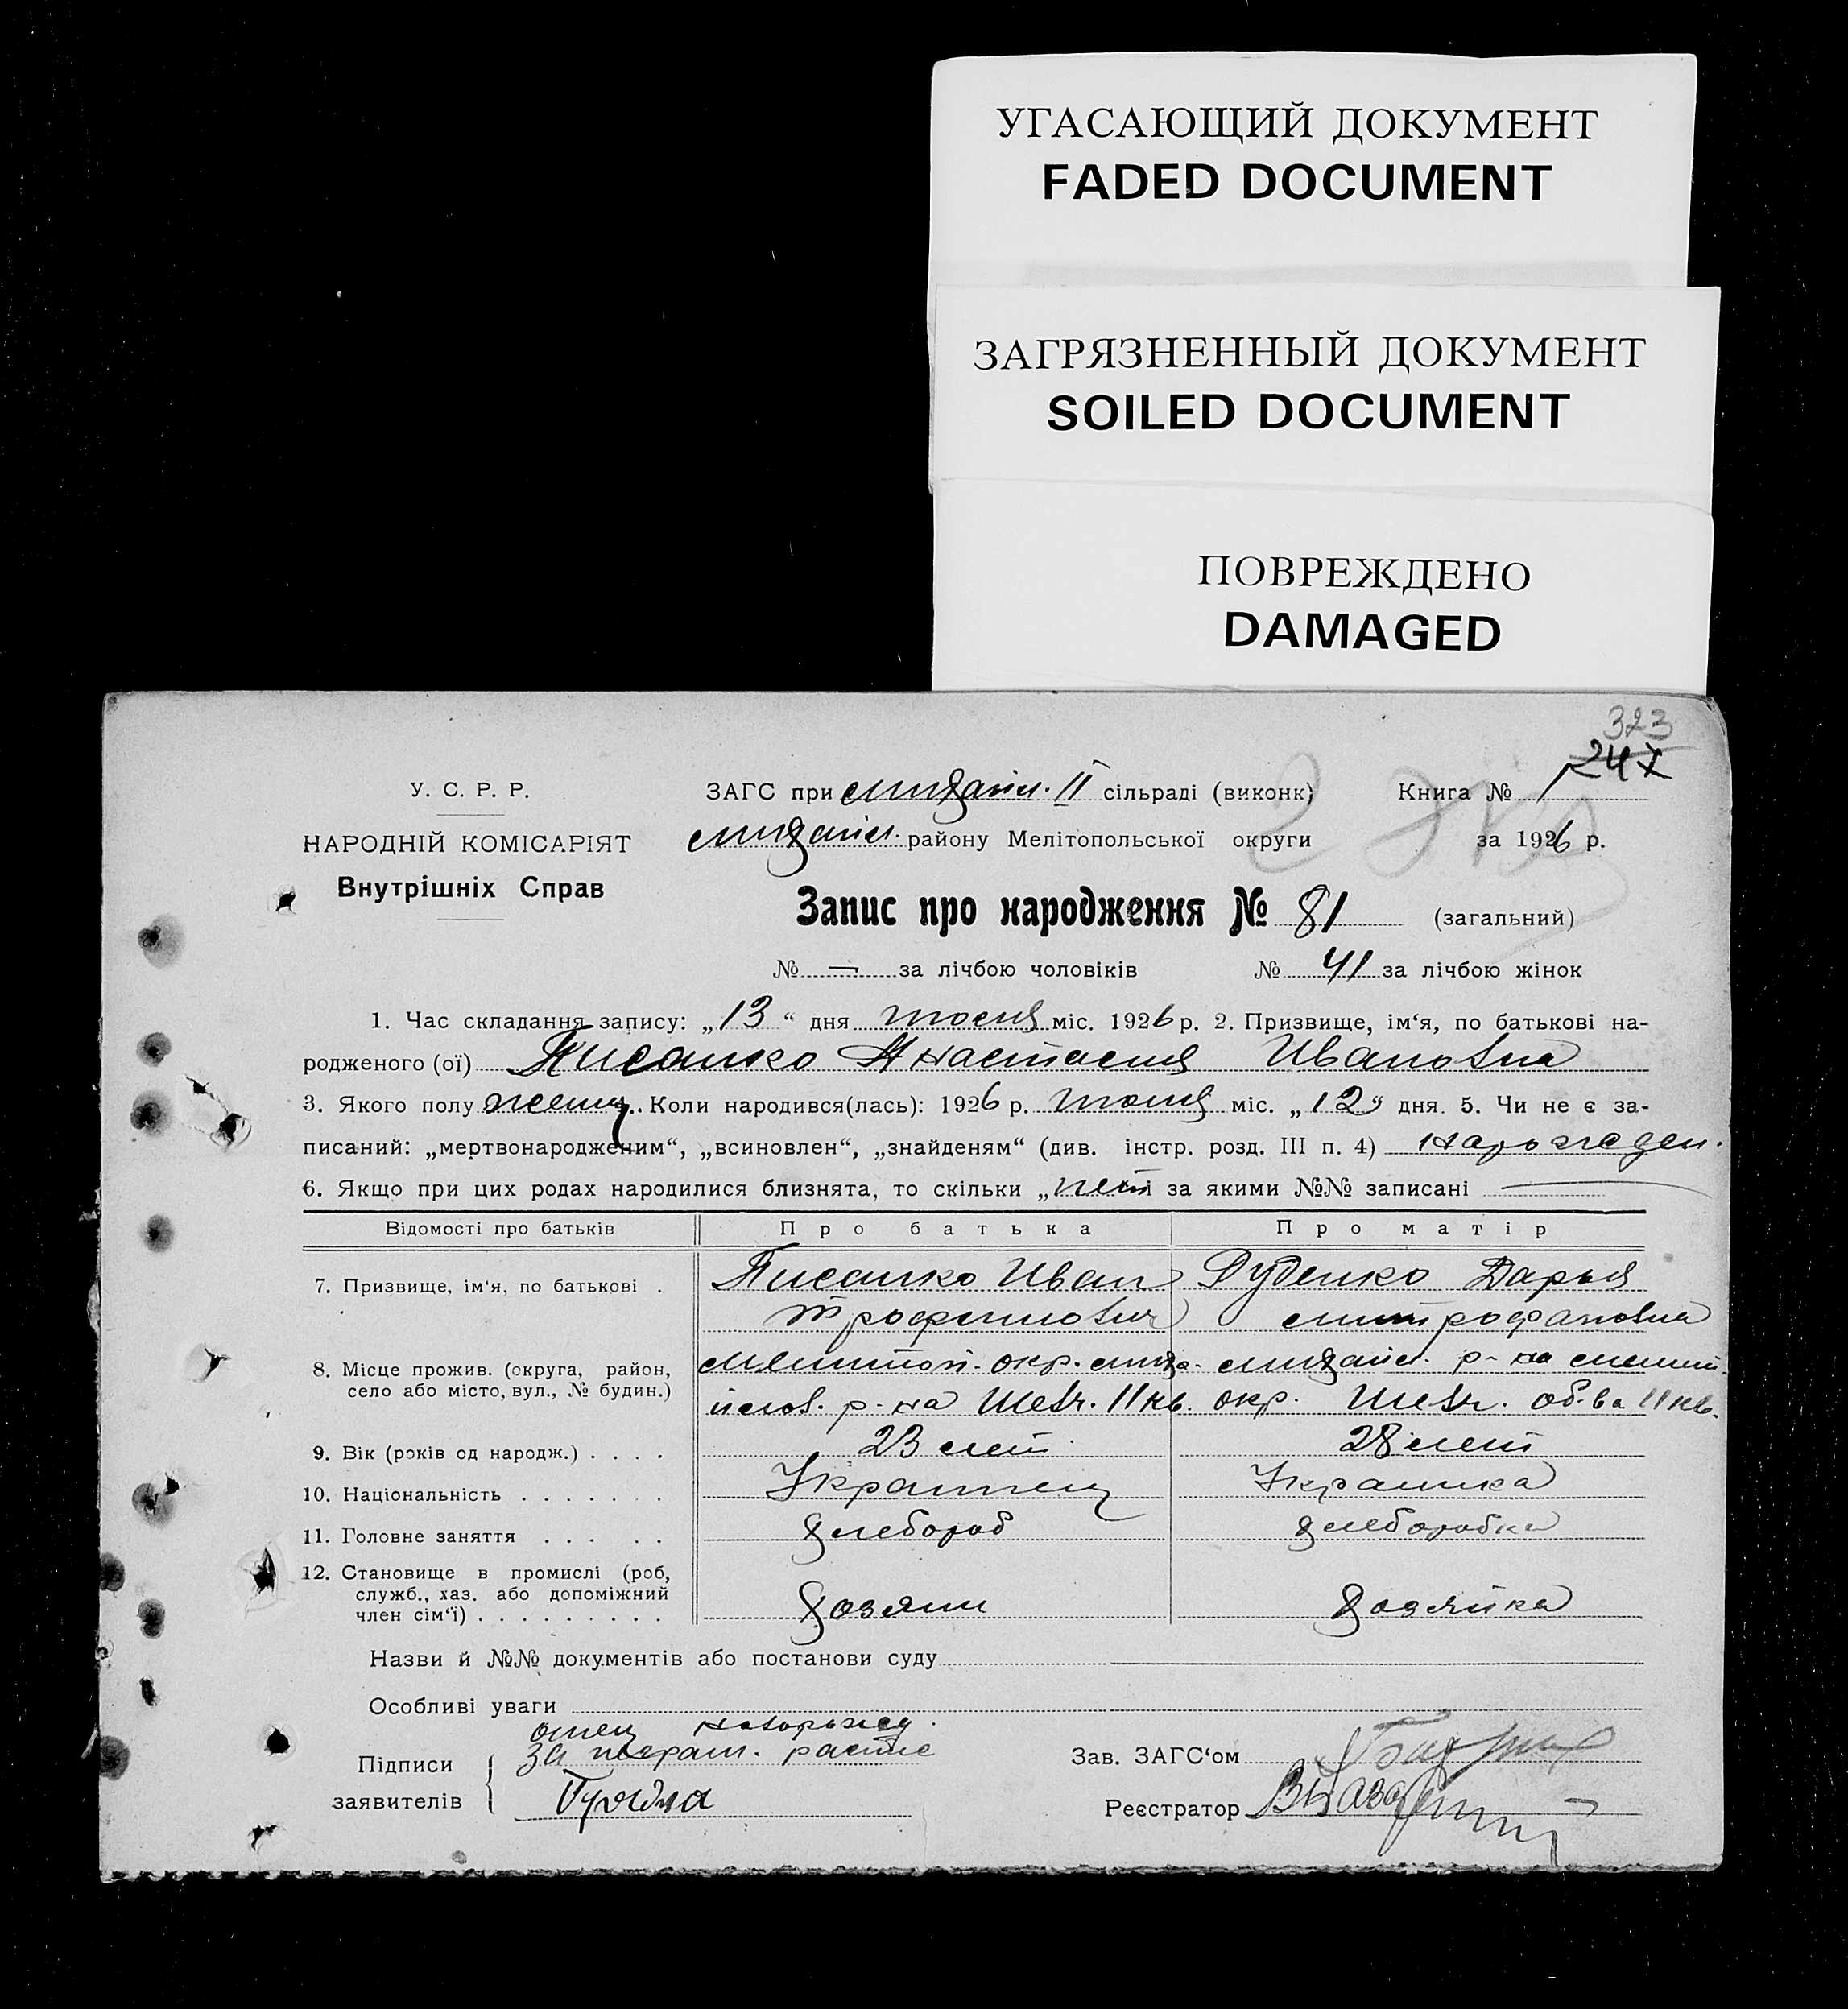 УГАСАЮЩИЙ ДОКУМЕНТ
FADED DOCUMENT
ЗАГРЯЗНЕННЫЙ ДОКУМЕНТ
SOILED DOCUMENT
ПОВРЕЖДЕНО
DAMAGED
323
247
У. С. Р. Р.
НАРОДНІЙ КОМІСАРІЯТ
Внутрішніх Справ
ЗАГС при михайл. II сільраді (виконк) Книга №
михайл. району Мелітопольської округи за 1926 р.
Запис про народження № 81 (загальний)
№ — за лічбою чоловіків № 41 за лічбою жінок
1. Час складання запису: „13“ дня июня міс. 1926 р. 2. Призвище, ім‘я, по батькові на-
родженого (ої) Писанко Анастасия Ивановна
3. Якого полу женщ. Коли народився(лась): 1926 р. июня міс. „12“ дня. 5. Чи не є за-
писаний: „мертвонародженим“, „всиновлен“, „знайденям“ (див. інстр. розд. III п. 4)
6. Якщо при цих родах народилися близнята, то скільки „нет й за якими №№ записані —
Відомості про батьків Про батька Про матір
7. Призвище, ім‘я, по батькові . Писанко Иван Руденко Дарья
Трофимович митрофановна
8. Місце прожив. (округа, район, мелитоп. окр. михай- михайл. р-на мелит.
село або місто, вул., № будин.) йлов. р-на Шевч. 11 кв. окр. Шевч. об-ва 11 кв.
9. Вік (років од народж.) . . . . 23 лет 28 лет
10. Національність . . . . . . . Украинец Украинка
11. Головне заняття . . . . . хлебороб хлеборобка
12. Становище в промислі (роб,
служб., хаз. або допоміжний
член сім‘ї) . . . . . . . . . хозяин хозяйка
Назви й №№ документів або постанови суду
Особливі уваги
отец новорожд.
Підписи за неграм. распис
заявителів
Зав. ЗАГС‘ом
Реєстратор